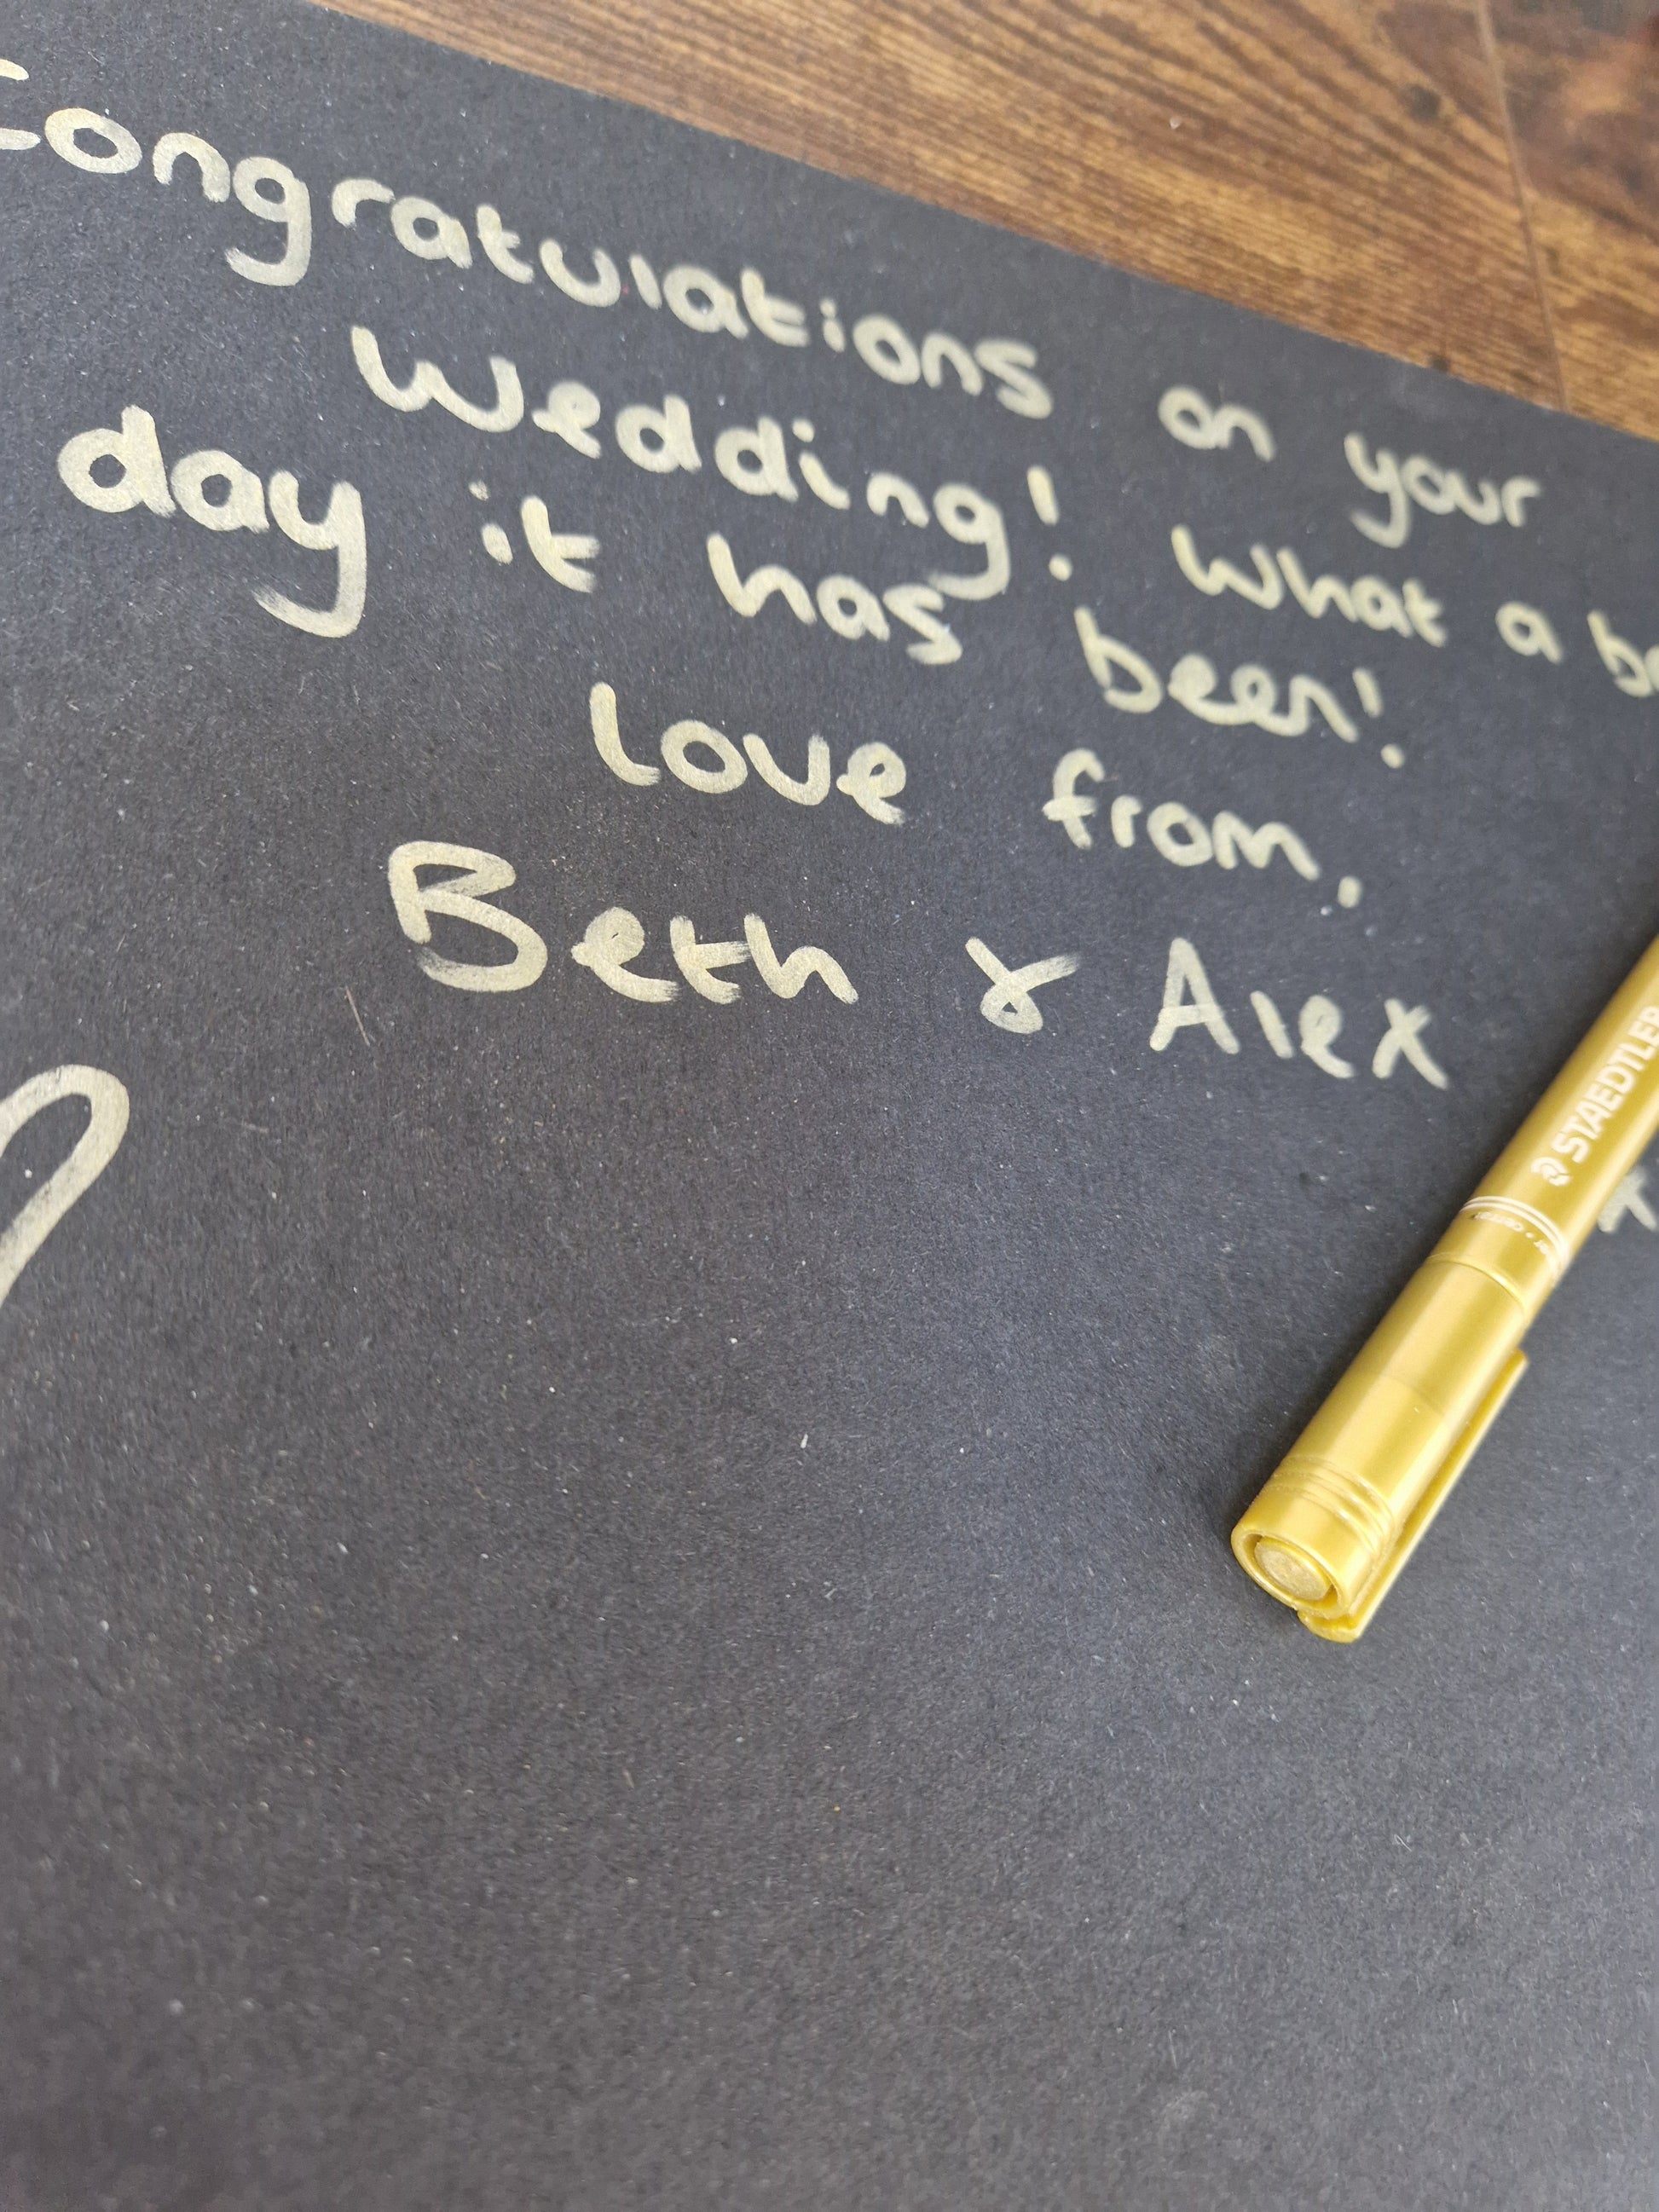 Congratulations on your
Wedding! What a
day it has been!
love from,
Beth & Alex
x
STAEDTLER